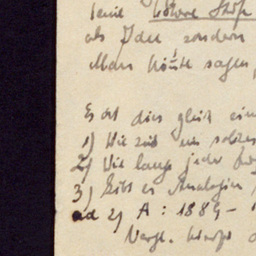 keine höhere Stufe
als Idee, sondern
Man könnte sagen,
Es ist dies gleich ein
1) Wie sind
2) Wie lange jeder
3) Gibt es Analogien
ad 2) A : 1889 -
Vergl.